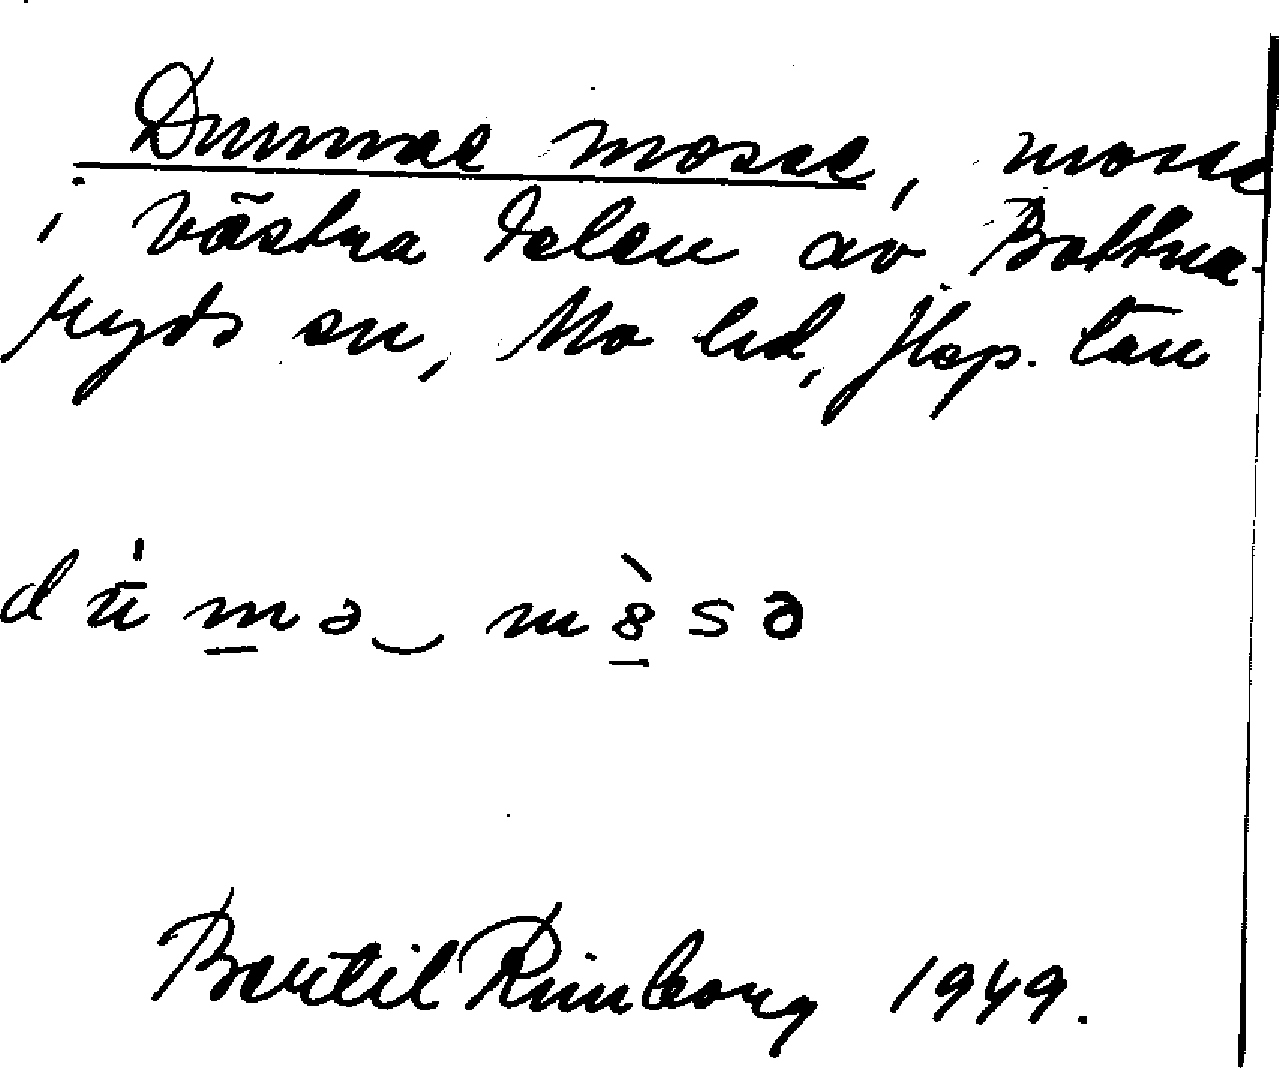 Dumme mosse, mosse
i västra delen av Bottna-
ryds sn, Mo hd, Jkp. län
dùmə‿m8̀sə
Bertil Rimborg 1949.